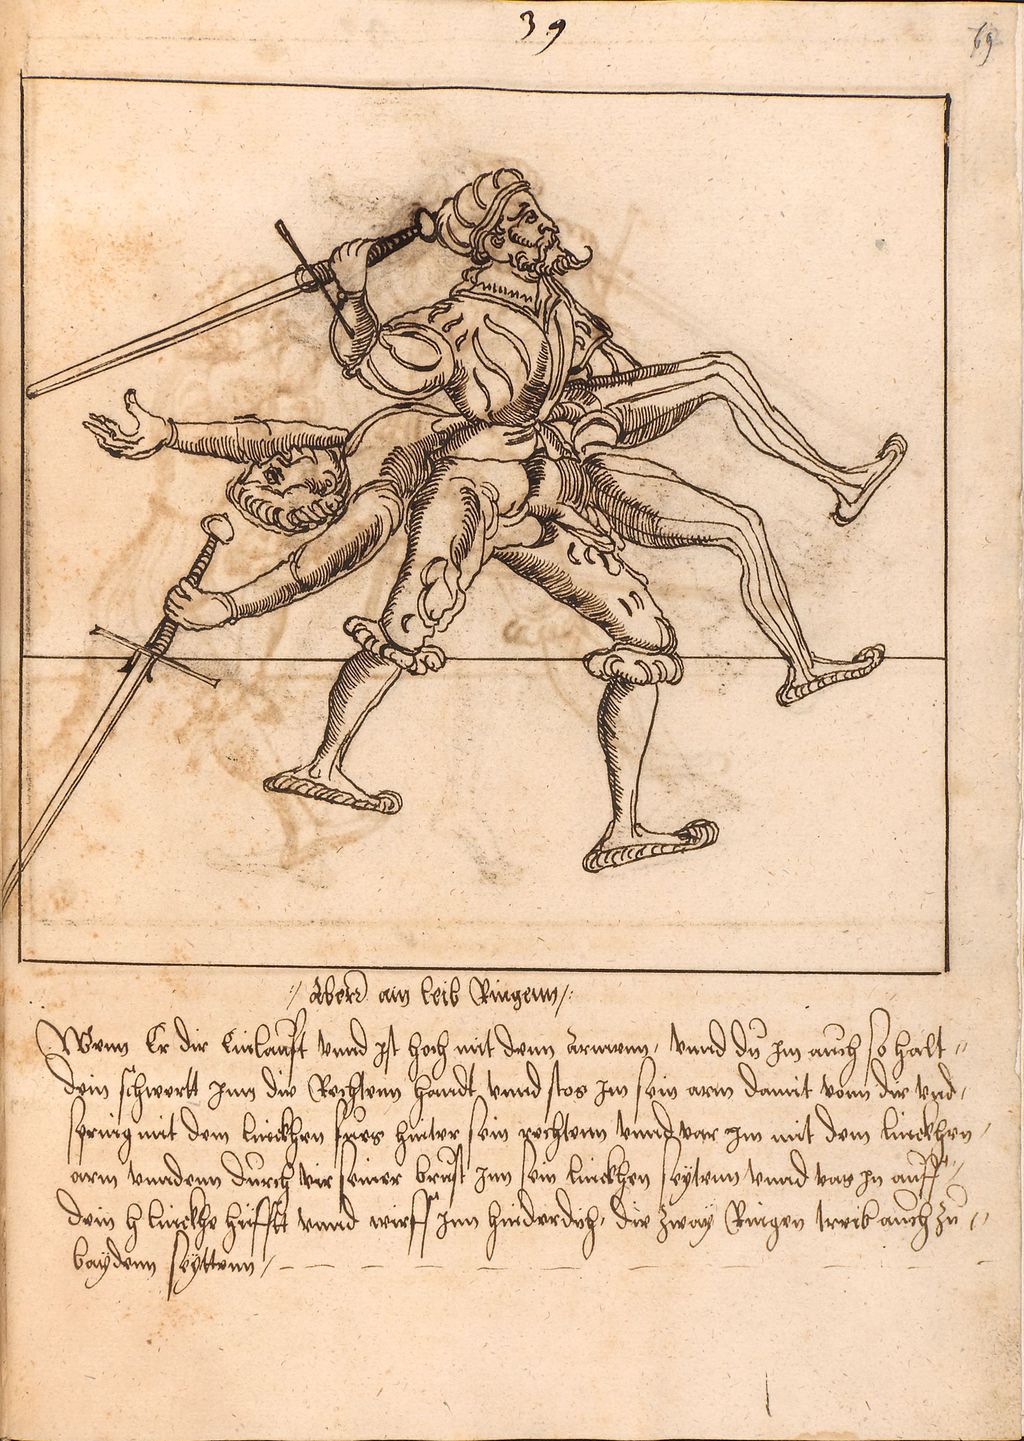 39
69
Aber ain leib Ringenn
Wenn Er dir Einlaufft vnnd jst hoch mit denn armenn, vnnd du jm auch so halt
dein schwertt Jnn die Rechtenn handt vnnd stos Jm sein arm damit vonn dir vnd
spring mit dem linckhen fues hinter sein rechtenn vnnd var Jm mit dem linckhen
arm vnndenn durch vir seiner brust Jnn sein linckhen seytenn vnnd vas Jn auff
dein h linckhe hüfft vnnd wirff Jnn hinderdich, die zway Ringen treib auch zu
baydenn seyttenn